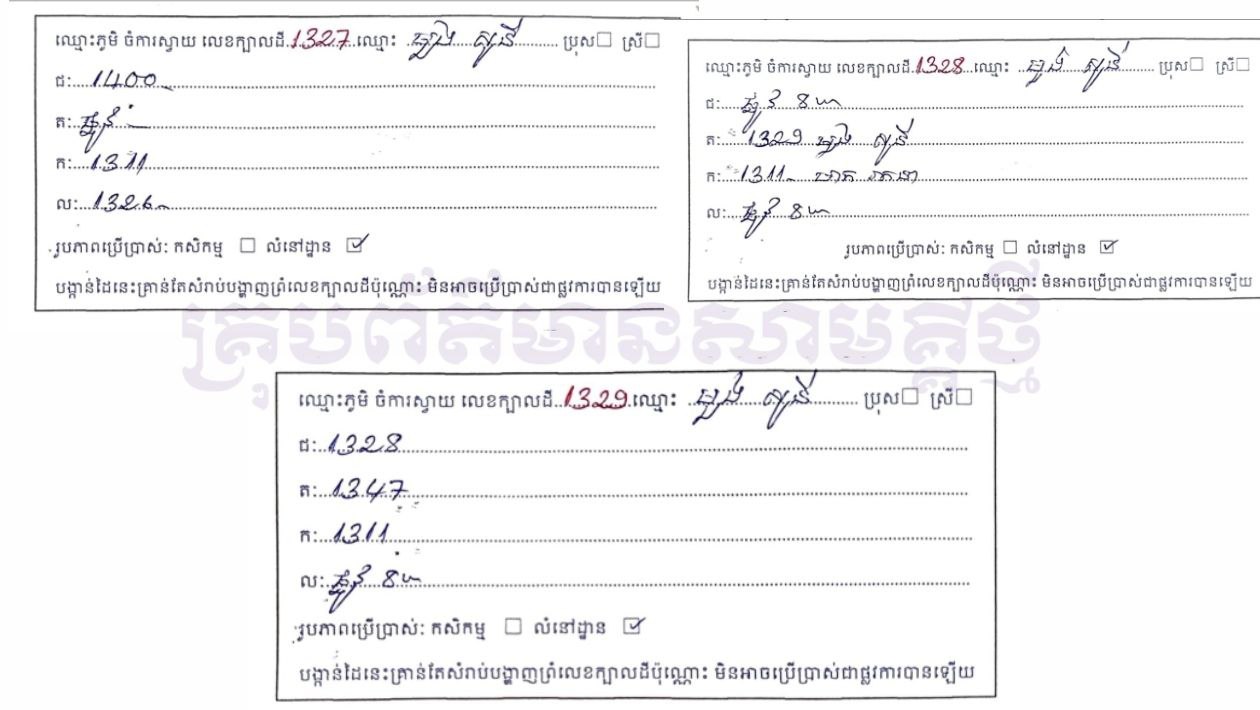 ឈ្មោះភូមិ ចំការស្វាយ លេខក្បាលដី 1327 ឈ្មោះ ម្លូង សុនី ប្រុស ស្រី
ជ: 1400
ត: ផ្លូវ
ក: 1311
ល: 1326
រូបភាពប្រើប្រាស់: កសិកម្ម លំនៅដ្ឋាន
បង្កាន់ដៃនេះគ្រាន់តែសំរាប់បង្ហាញព្រំលេខក្បាលដីប៉ុណ្ណោះ មិនអាចប្រើប្រាស់ជាផ្លូវការបានឡើយ
ឈ្មោះភូមិ ចំការស្វាយ លេខក្បាលដី 1328 ឈ្មោះ ប្រុស ស្រី
ជ: ផ្លូវ 8ម
ត: 1329
ក: 1311
ល: ផ្លូវ 8ម
រូបភាពប្រើប្រាស់: កសិកម្ម លំនៅដ្ឋាន
បង្កាន់ដៃនេះគ្រាន់តែសំរាប់បង្ហាញព្រំលេខក្បាលដីប៉ុណ្ណោះ មិនអាចប្រើប្រាស់ជាផ្លូវការបានឡើយ
គ្រុបព័ត៌មានសាមគ្គីថ្មី
ឈ្មោះភូមិ ចំការស្វាយ លេខក្បាលដី 1329 ឈ្មោះ ប្រុស ស្រី
ជ: 1328
ត: 1347
ក: 1311
ល: ផ្លូវ 8ម
រូបភាពប្រើប្រាស់: កសិកម្ម លំនៅដ្ឋាន
បង្កាន់ដៃនេះគ្រាន់តែសំរាប់បង្ហាញព្រំលេខក្បាលដីប៉ុណ្ណោះ មិនអាចប្រើប្រាស់ជាផ្លូវការបានឡើយ